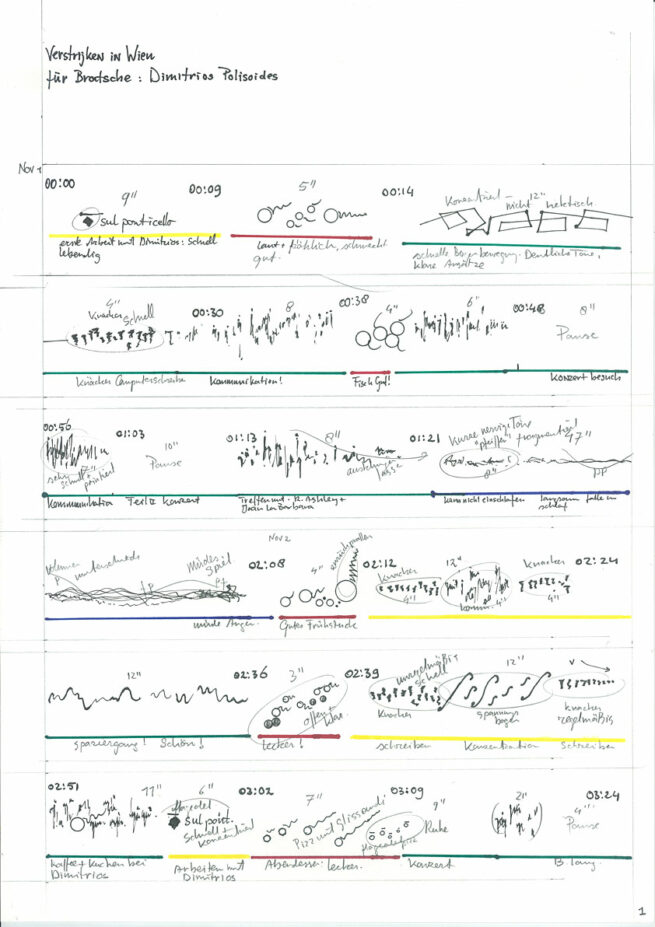 Verstrijken in Wien
für Brotsche : Dimitrios Polisoides
Nov 1
00:00 9" 00:09 5" 00:14 12"
Konzentriert – nicht hektisch
sul ponticello
erste Arbeit mit Dimitrios: Schnell
lebendig
Laut + fröhlich, schmeckt
gut.
schnelle Bogenbewegung. Deutliche Töne,
klare Ansätze
4" 00:30 8 00:38 4" 6" 00:48 8"
Knacker Schnell
Pause
Knacker Computerschreiben
Kommunikation!
Fisch Gut!
Konzert besuch
00:56 01:03 10" 01:13 8" 01:21 47"
Kurze nervige Töne
"pfeiffen" fragmentiert
Pause
sehr
schnell +
pointiert
8"
pp
Kommunikation
Teil II Konzert
Treffen mit R. Ashley +
Joan La Barbara
kann nicht einschlafen
langsam falle in
schlaf
Nov 2
müdes
Spiel
02:08 4" 02:12 12" 02:24
p p
Knacker
Knacker
4" 4" 4"
Komm.
müde Augen.
Gutes Frühstück
12" 02:36 3" 02:39 12"
unregelmäßig
schnell
offen +
klar.
Knacker
spannungs
bogen
Knacker
regelmäßig
Spaziergang! Schön!
Lecker!
schreiben
Konzentration
Schreiben
02:51 11" 6" 03:02 7" 03:09 9" 21" 03:24
sul pont.
Schnell
Konzentriert
Pizz mit Glissandi
Ruhe
4"
Pause
Kaffee + Kuchen bei
Dimitrios
Arbeiten mit
Dimitrios
Abendessen
Lecker.
Konzert
1